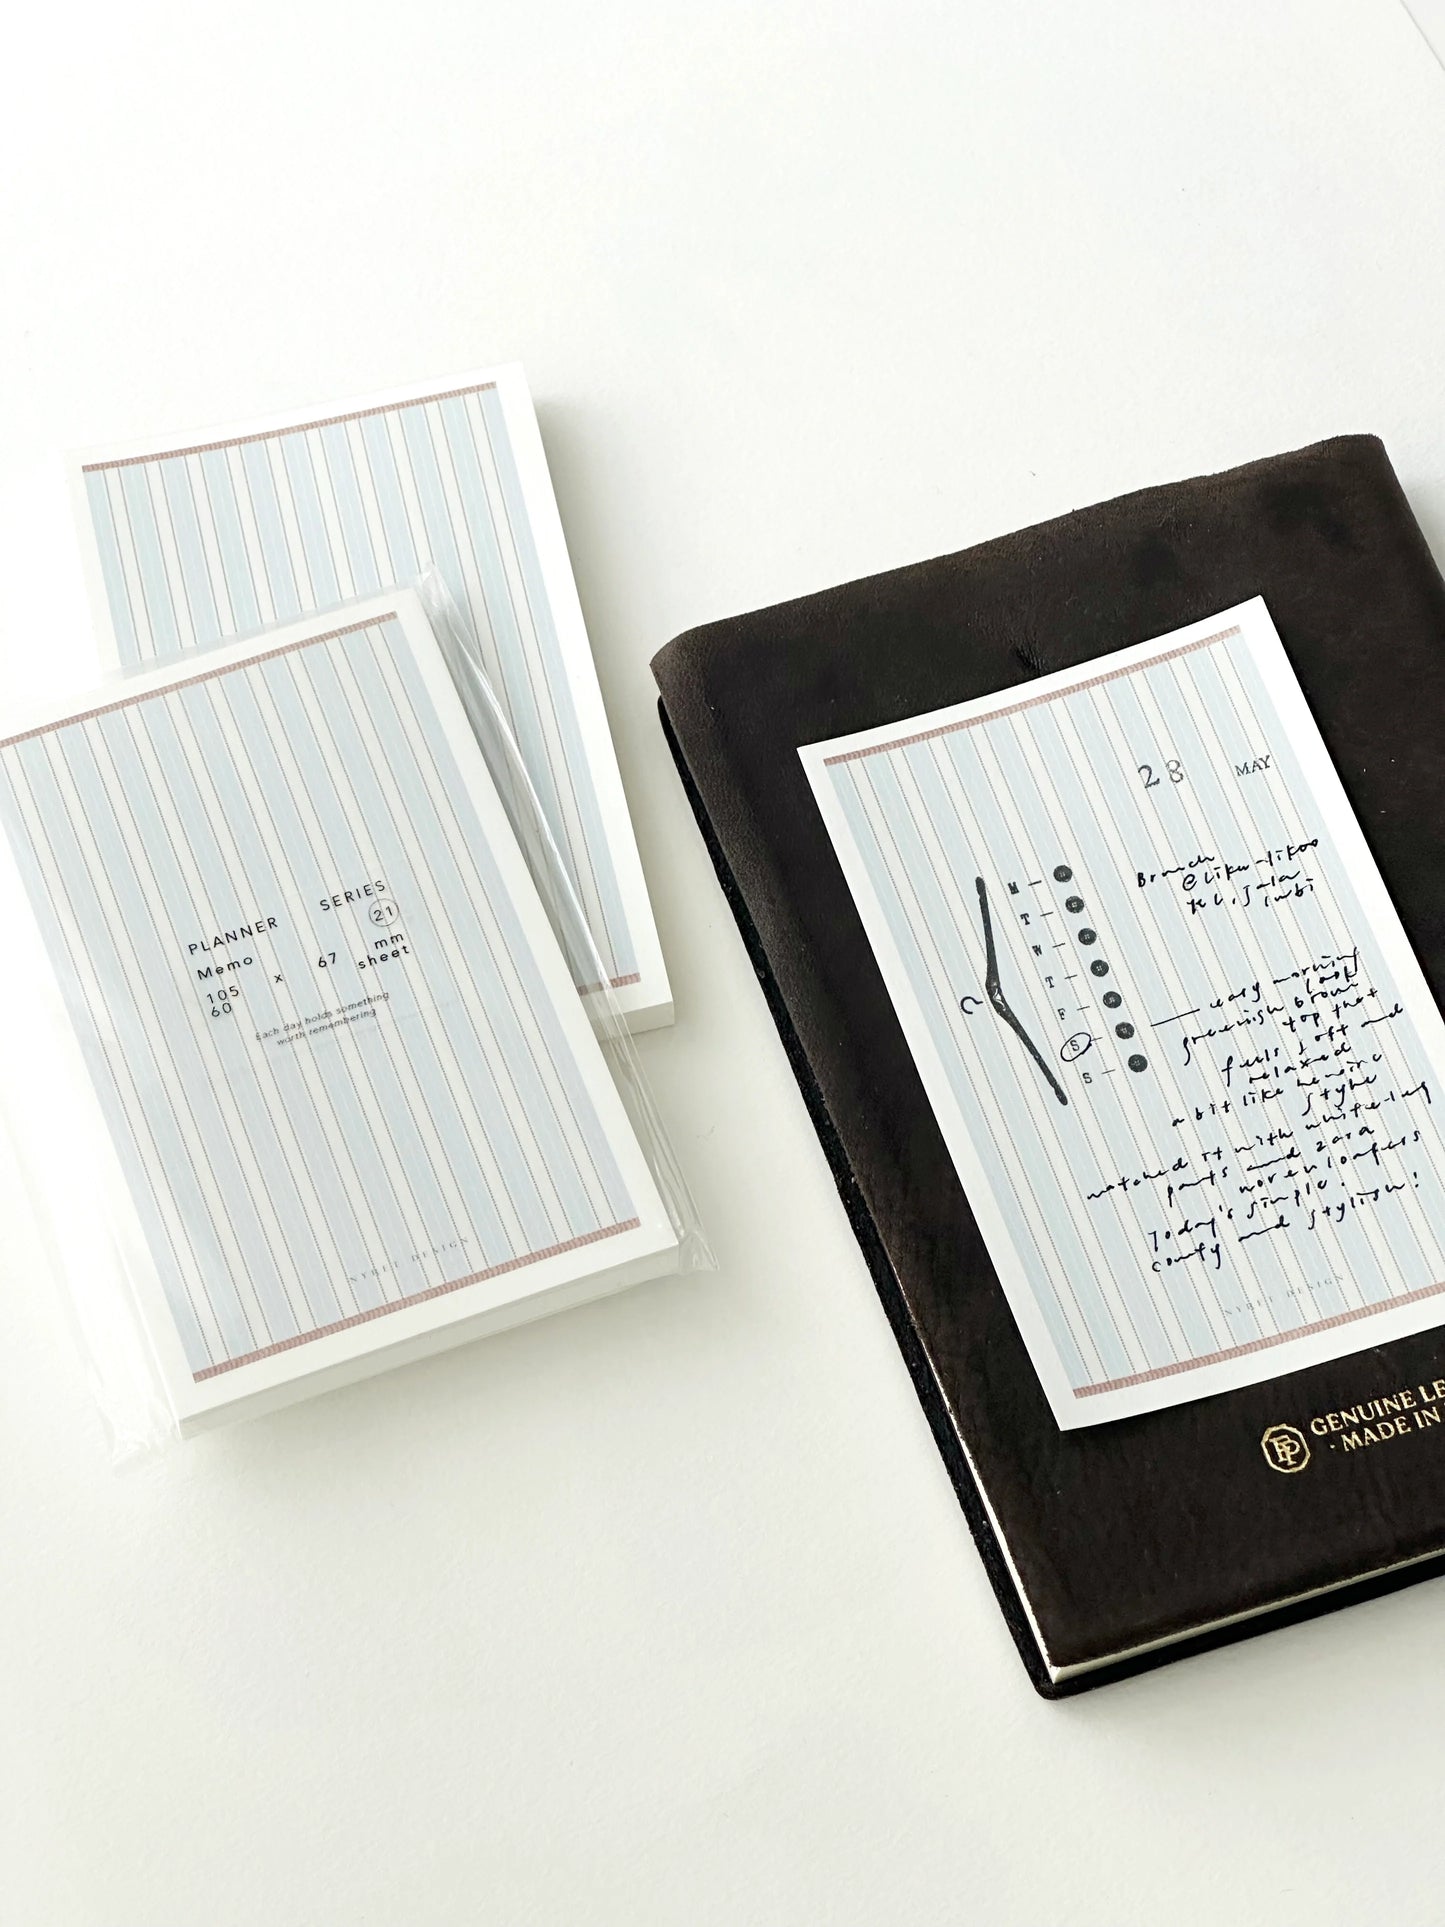 PLANNER SERIES
Memo 21
105 x 67 mm
60 sheet
Each day holds something
worth remembering
NYRET DESIGN
28 MAY
Brunch
M
T
W
T
F
S
S
easy morning
look
greenish brown
top that
feels soft and
relaxed
a bit like
style
matched it with white-leg
pants and zara
woven loafers
Today's simple.
comfy and stylish!
NYRET DESIGN
GENUINE LE
· MADE IN